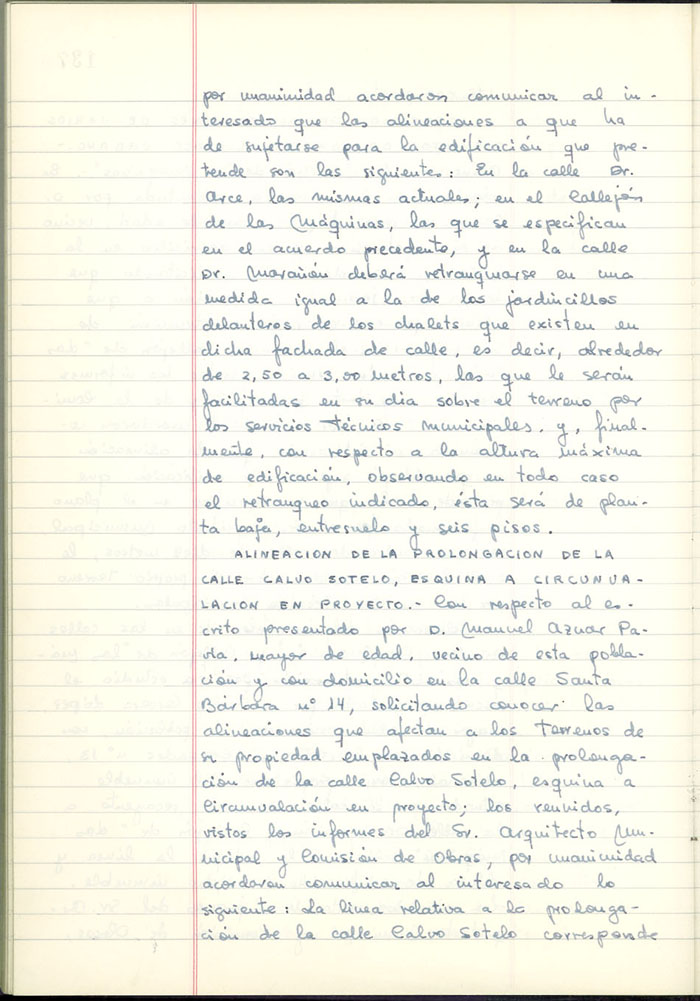 por unanimidad acordaron comunicar al in-
teresado que las alineaciones a que ha
de sujetarse para la edificación que pre-
tende son las siguientes: En la calle Dr.
Arce, las mismas actuales; en el Callejón
de las Máquinas, las que se especifican
en el acuerdo precedente, y en la calle
Dr. Marañón deberá retranquearse en una
medida igual a la de los jardincillos
delanteros de los chalets que existen en
dicha fachada de calle, es decir, alrededor
de 2,50 a 3,00 metros, las que le serán
facilitadas en su dia sobre el terreno por
los servicios técnicos municipales, y, final-
mente, con respecto a la altura máxima
de edificación, observando en todo caso
el retranqueo indicado, ésta será de plan-
ta baja, entresuelo y seis pisos.
ALINEACION DE LA PROLONGACION DE LA
CALLE CALVO SOTELO, ESQUINA A CIRCUNVA-
LACION EN PROYECTO.- Con respecto al es-
crito presentado por D. Manuel Aznar Pa-
vía, mayor de edad, vecino de esta pobla-
ción y con domicilio en la calle Santa
Bárbara nº 14, solicitando conocer las
alineaciones que afectan a los terrenos de
su propiedad emplazados en la prolonga-
ción de la calle Calvo Sotelo, esquina a
Circunvalación en proyecto; los reunidos,
vistos los informes del Sr. Arquitecto Mu-
nicipal y Comisión de Obras, por unanimidad
acordaron comunicar al interesado lo
siguiente: La línea relativa a la prolonga-
ción de la calle Calvo Sotelo corresponde